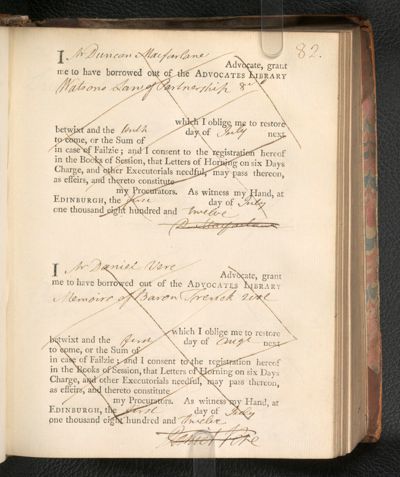 82.
I Mr Duncan Macfarlane
Advocate, grant
me to have borrowed out of the ADVOCATES LIBRARY
Watsons Law of Partnership 8vo
which I oblige me to restore
betwixt and the tenth day of July next
to come, or the Sum of
in case of Failzie; and I consent to the registration hereof
in the Books of Session, that Letters of Horning on six Days
Charge, and other Executorials needful, may pass thereon,
as effeirs, and thereto constitute
my Procurators. As witness my Hand, at
EDINBURGH, the first day of July
one thousand eight hundred and twelve
D. Macfarlane
I Mr Daniel Vere
Advocate, grant
me to have borrowed out of the ADVOCATES LIBRARY
Memoirs of Baron Trenck
which I oblige me to restore
betwixt and the first day of Augt next
to come, or the Sum of
in case of Failzie; and I consent to the registration hereof
in the Books of Session, that Letters of Horning on six Days
Charge, and other Executorials needful, may pass thereon,
as effeirs, and thereto constitute
my Procurators. As witness my Hand, at
EDINBURGH, the first day of July
one thousand eight hundred and twelve
Daniel Vere